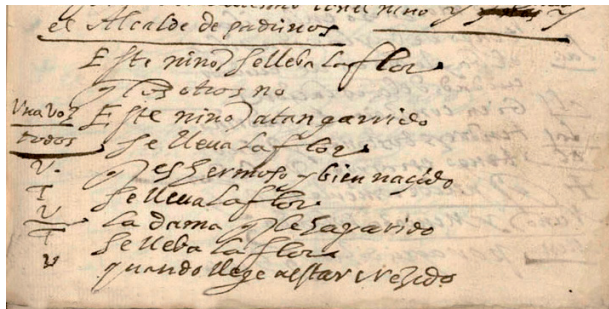 el Alcalde de padunos
Este nino se lleba la flor
y los otros no
Una voz Este nino atan garrido
todos se lleua la flor
V. q es hermoso y bien nacido
T se lleua la flor
V la dama q le ha parido
T se lleba la flor
V quando llege a estar crezido